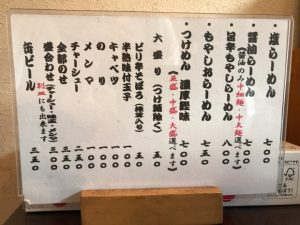 塩らーめん 七〇〇
醤油らーめん 七〇〇
(醤油のみ中細麺・中太麺選べます)
旨辛もやしらーめん 八〇〇
もやしおらーめん 七五〇
つけめん 濃厚醤味 七〇〇
(並盛・中盛・大盛選べます)
大盛り (つけ麺除く) 一〇〇
ピリ辛そぼろ
半熟味付玉子 一〇〇
キャベツ 一〇〇
のり 一〇〇
メンマ 一〇〇
チャーシュー
全部のせ 三五〇
盛合わせ
別皿にも出来ます
缶ビール 三五〇